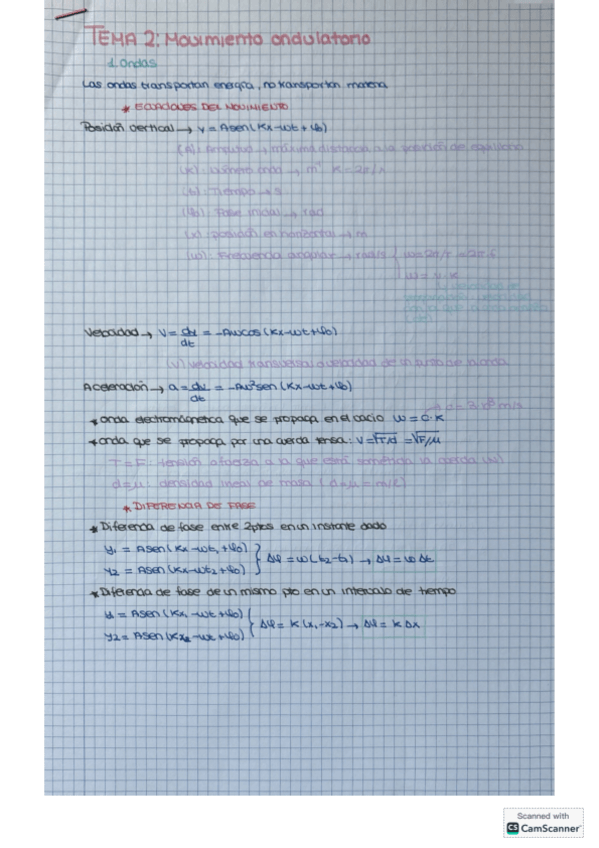 TEMA 2: Movimiento ondulatorio
1. Ondas
Las ondas transportan energía, no transportan materia
* ECUACIONES DEL MOVIMIENTO
Posición vertical → y = Asen(Kx-wt+φ0)
(A): Amplitud → máxima distancia a la posición de equilibrio
(K): número onda → m⁻¹ K=2π/λ
(t): Tiempo → s
(φ0): Fase inicial → rad
(x): posición en horizontal → m
(w): Frecuencia angular → rad/s { w=2π/T = 2πf
w = v·k
Velocidad → V = dy/dt = -Awcos(Kx-wt+φ0)
(v) velocidad transversal o velocidad de un punto de la onda
Aceleración → a = dv/dt = -Aw²sen(Kx-wt+φ0)
→ c = 3·10⁸ m/s
* onda electromagnética que se propaga en el vacío w = c·K
* onda que se propaga por una cuerda tensa: V=√T/d = √F/μ
T=F: tensión o fuerza a la que está sometida la cuerda (N)
d=μ: densidad lineal de masa (d=μ=m/l)
* DIFERENCIA DE FASE
* Diferencia de fase entre 2ptos en un instante dado
y1 = Asen(Kx-wt1+φ0) } Δφ = w(t2-t1) → Δφ = wΔt
y2 = Asen(Kx-wt2+φ0)
* Diferencia de fase de un mismo pto en un intervalo de tiempo
y1 = Asen(Kx1-wt+φ0) } Δφ = K(x1-x2) → Δφ = KΔx
y2 = Asen(Kx2-wt+φ0)
Scanned with
CS CamScanner